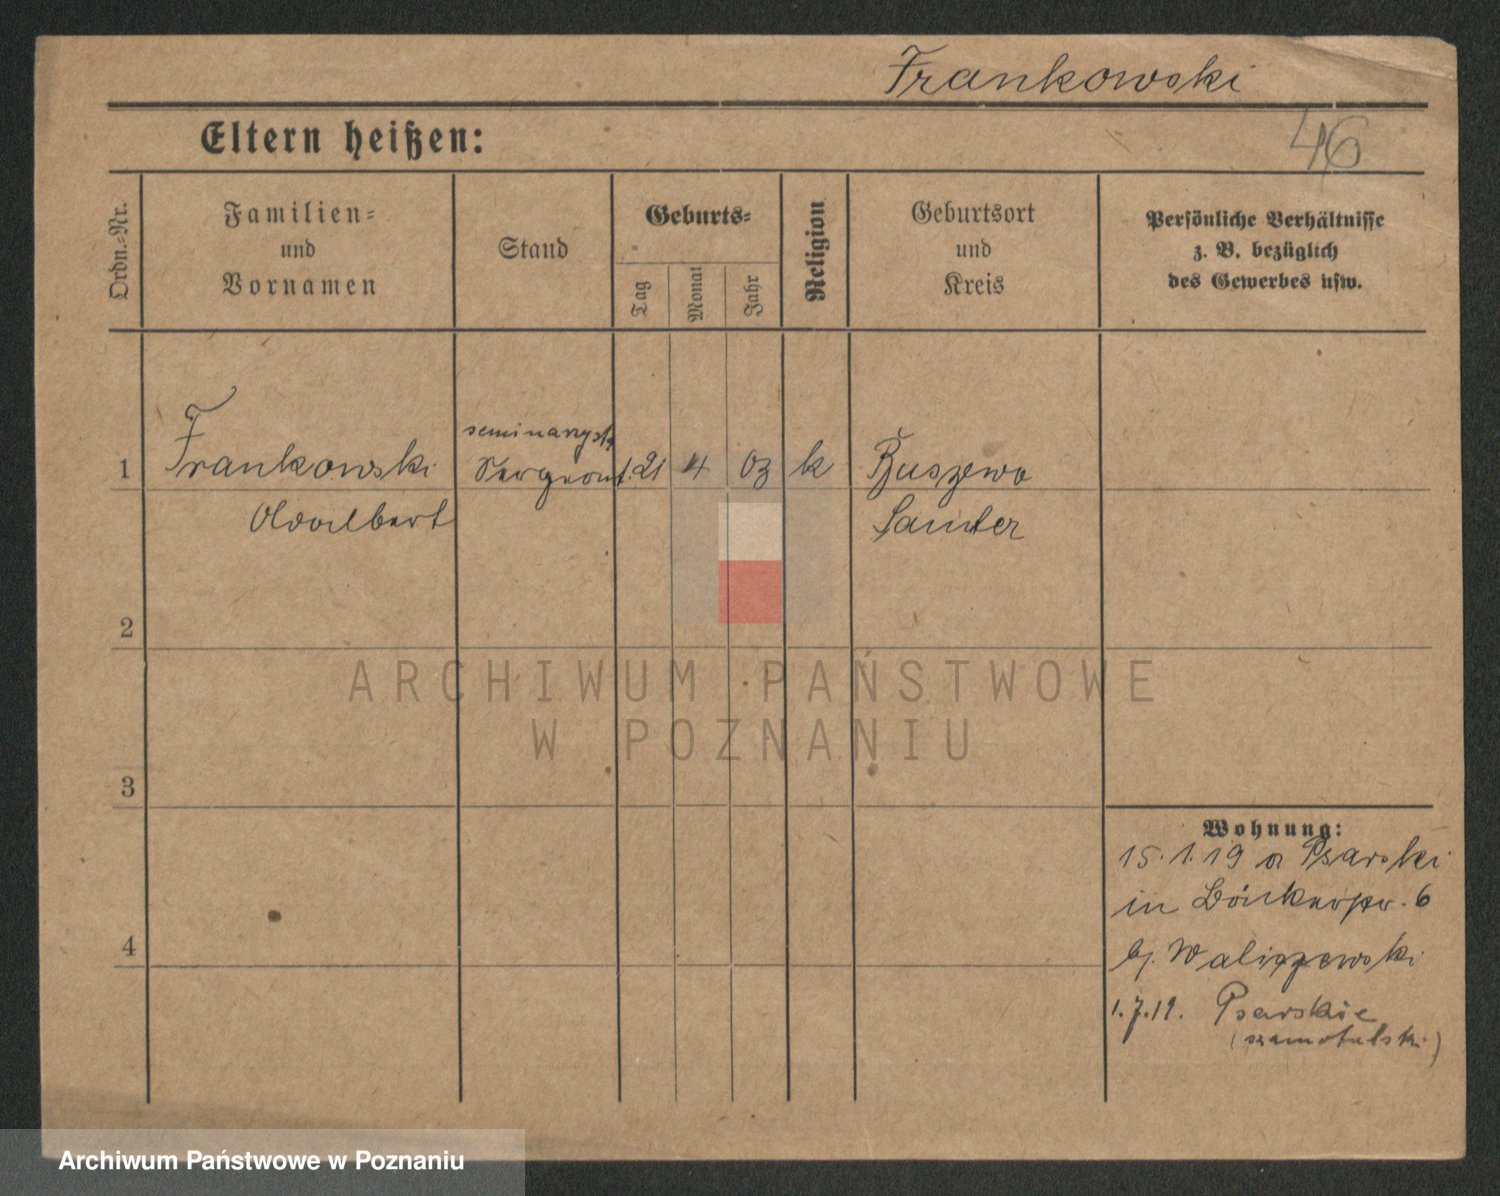 Frankowski
46
Eltern heißen:
Ordn.-Nr.
Familien-
und
Vornamen
Stand
Geburts-
Tag
Monat
Jahr
Religion
Geburtsort
und
Kreis
Persönliche Verhältnisse
z. B. bezüglich
des Gewerbes usw.
seminarzysta
1 Frankowski 21 4 03 k Buszewo
Adalbert Samter
2
ARCHIWUM PAŃSTWOWE
W POZNANIU
3
Wohnung:
15.1.19 a Psarski
in 6
4
b/. Waliszewski
1.7.19. Psarskie
(szamotulski)
Archiwum Państwowe w Poznaniu